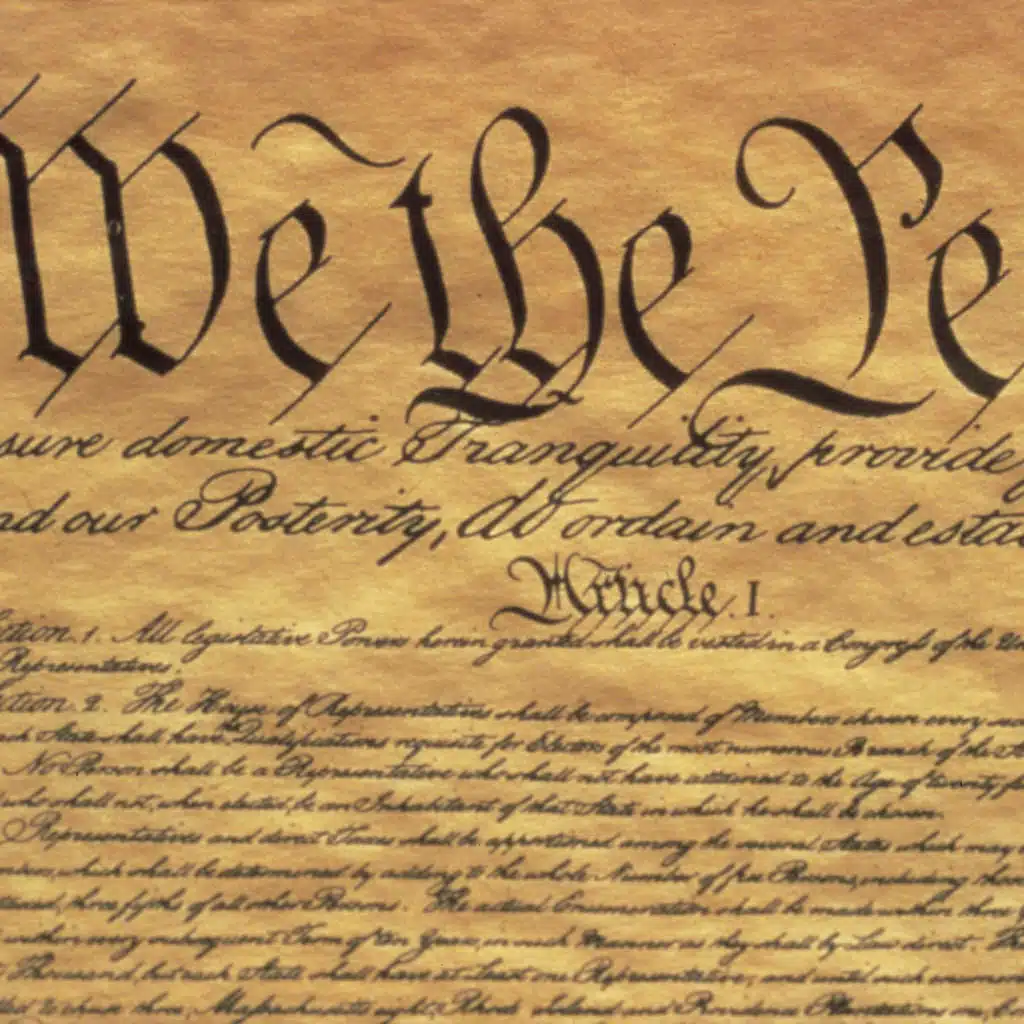 We the Pe
sure domestic Tranquility, provide
nd our Posterity, do ordain and esta
Article. I.
ction. 1. All legislative Powers herein granted shall be vested in a Congress of the Un
Representatives.
ction. 2. The House of Representatives shall be composed of Members chosen every
ach State shall have the Qualifications requisite for Electors of the most numerous Branch of the
No Person shall be a Representative who shall not have attained to the Age of twenty
who shall not, when elected, be an Inhabitant of that State in which he shall be chosen.
Representatives and direct Taxes shall be apportioned among the several States which may
which shall be determined by adding to the whole Number of free Persons, including those
three fifths of all other Persons. The actual Enumeration shall be made within three
within every subsequent Term of ten Years, in such Manner as they shall by Law direct.
Thousand, but each State shall have at Least one Representative; and until such
to chuse three, Massachusetts eight, Rhode Island and Providence Plantations one,